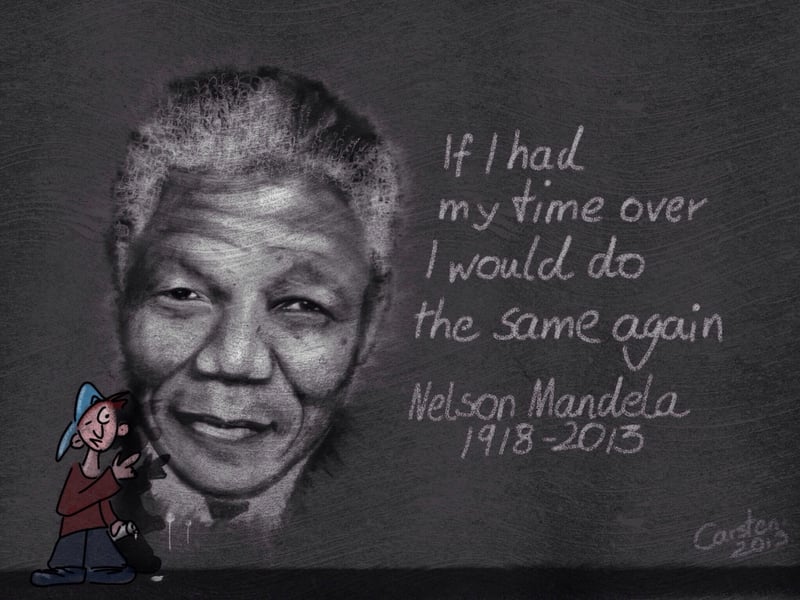 If I had
my time over
I would do
the same again
Nelson Mandela
1918-2013
Carsten
2013